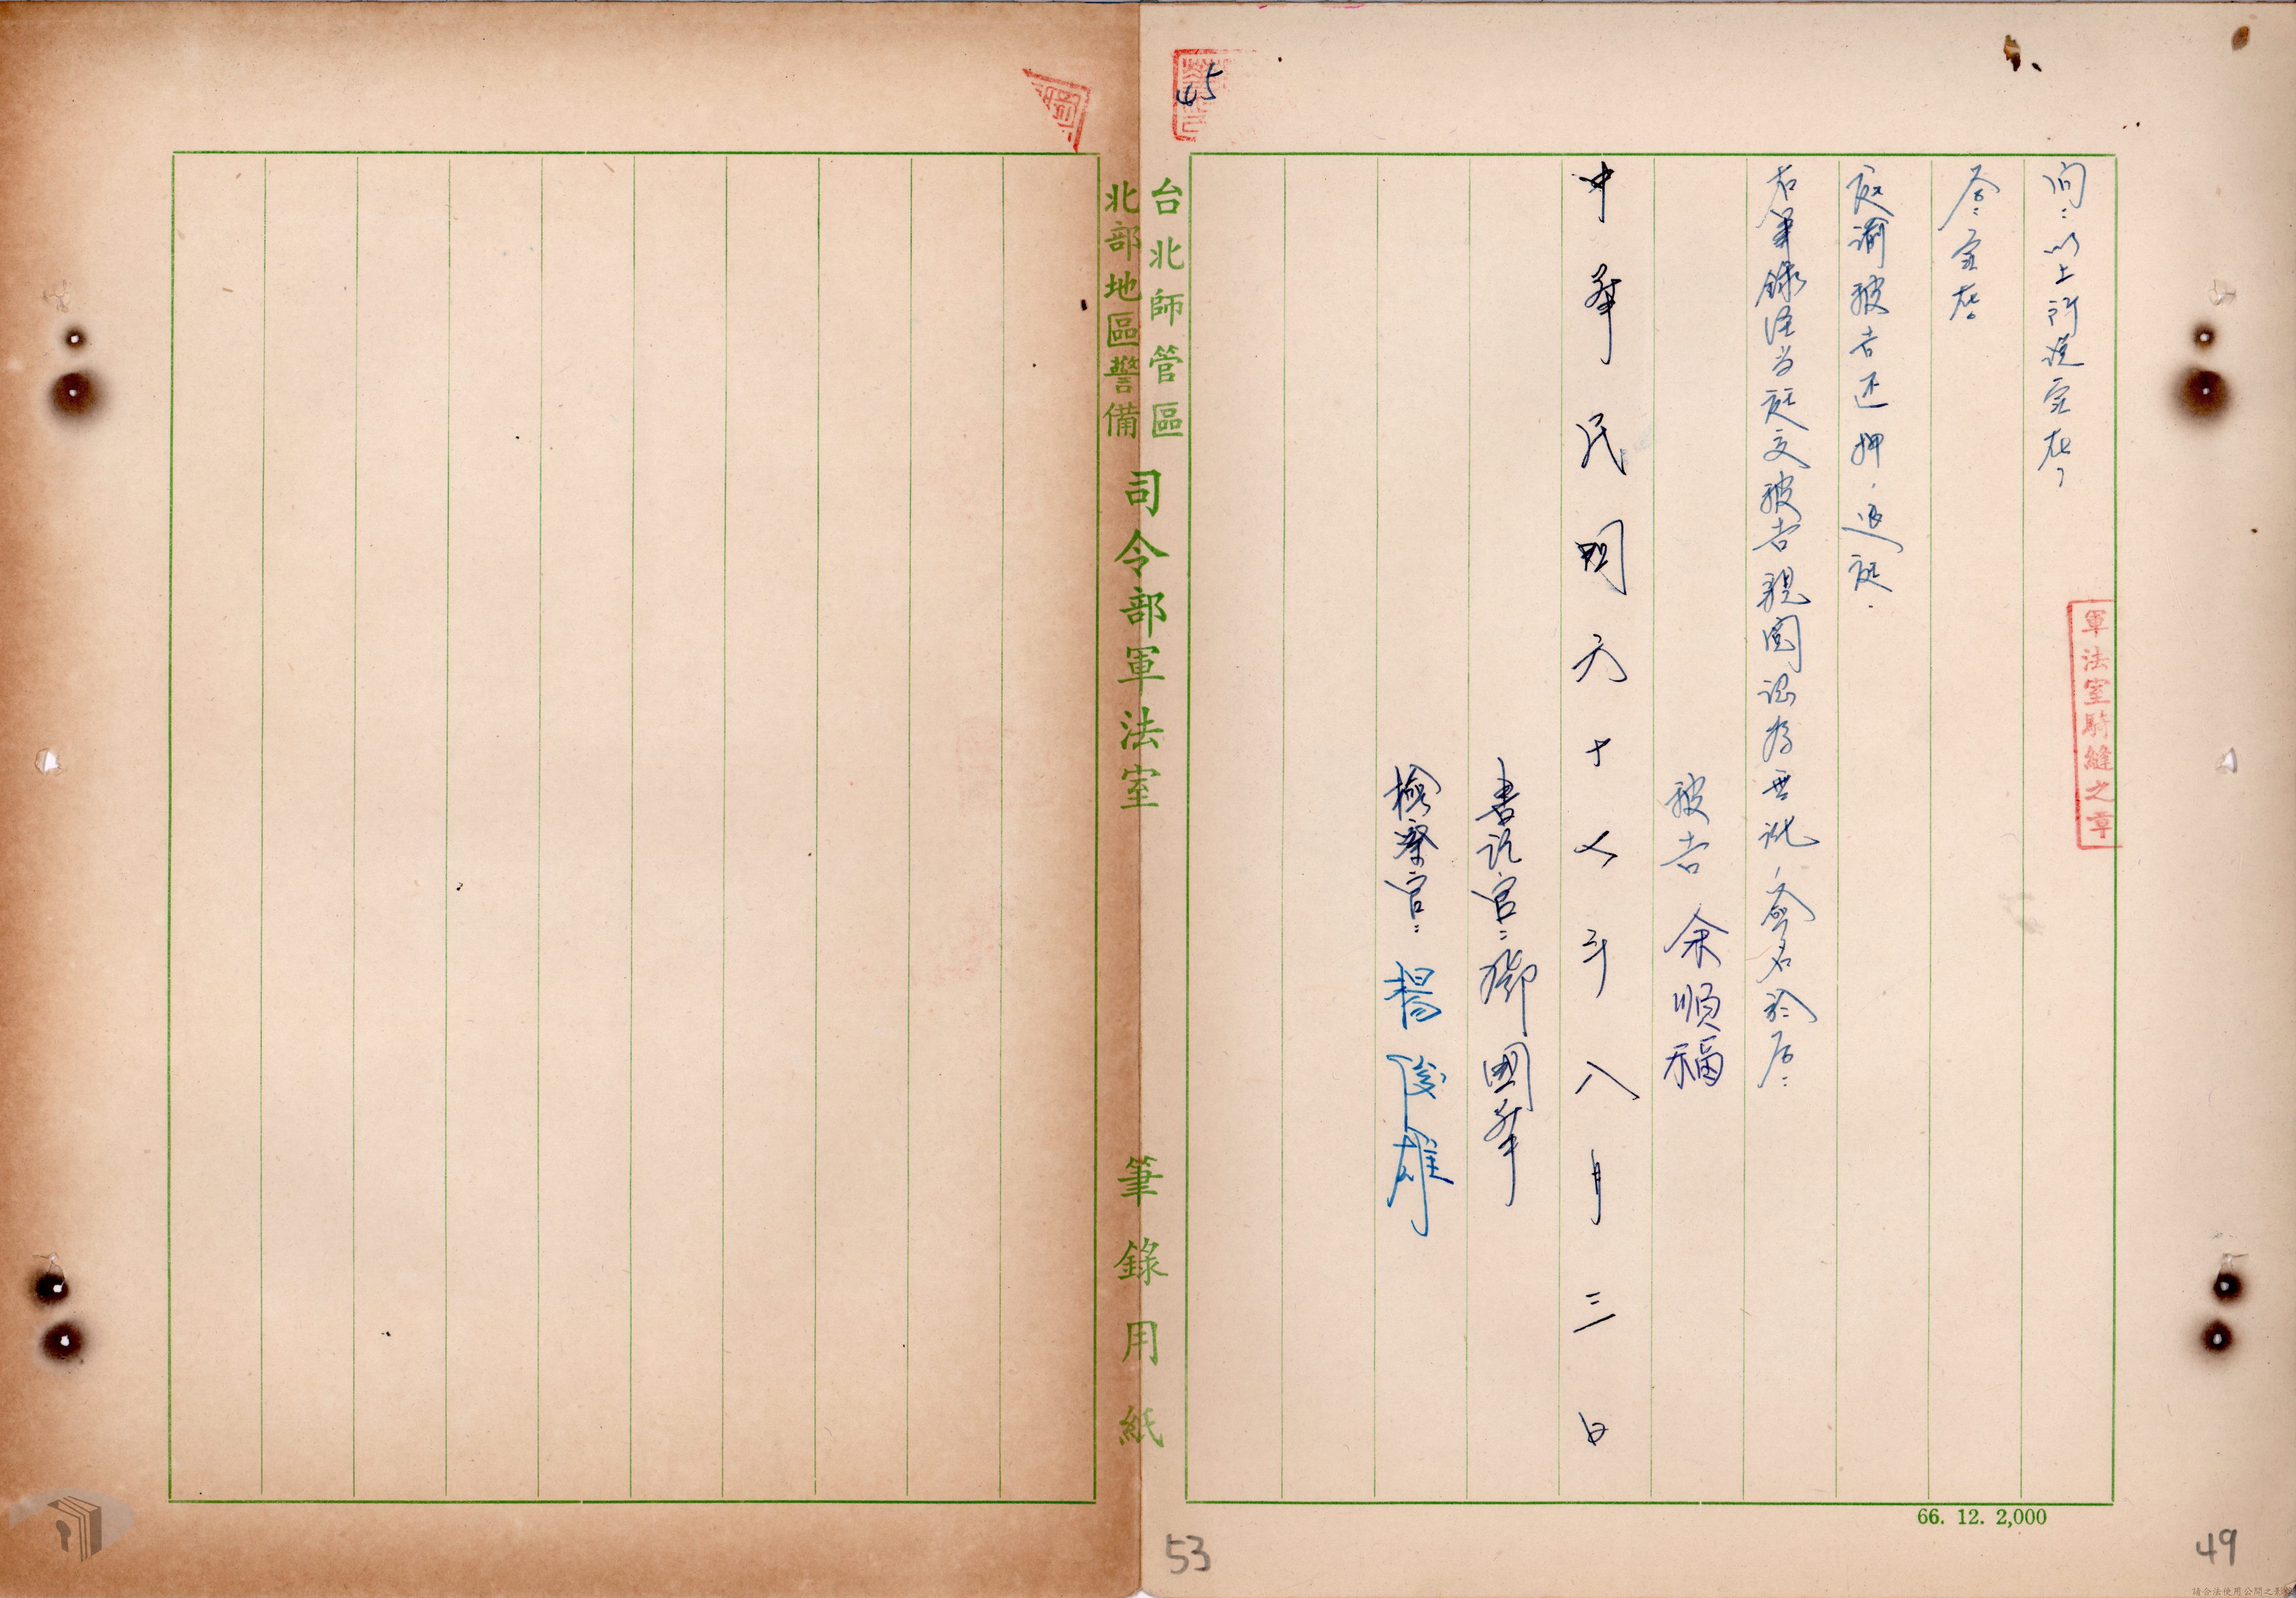 問：以上所說實在？
答：實在。
庭諭被告还押，退庭。
右筆錄経当庭交被告親閱認為無訛，簽名於后：
被告 余順福
中華民國六十七年八月三日
書記官：鄭國華
檢察官：楊俊雄
軍法室騎縫之章
45
台北師管區
北部地區警備
司令部軍法室 筆錄用紙
66. 12. 2,000
53
49
請合法使用公開之影